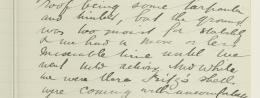 roof being some tarpaulin
and timber, but the ground
was too moist for stability
& we had a more or less
miserable time until we
went into action. And while
we were there Fritz's shells
were coming with uncomfortable